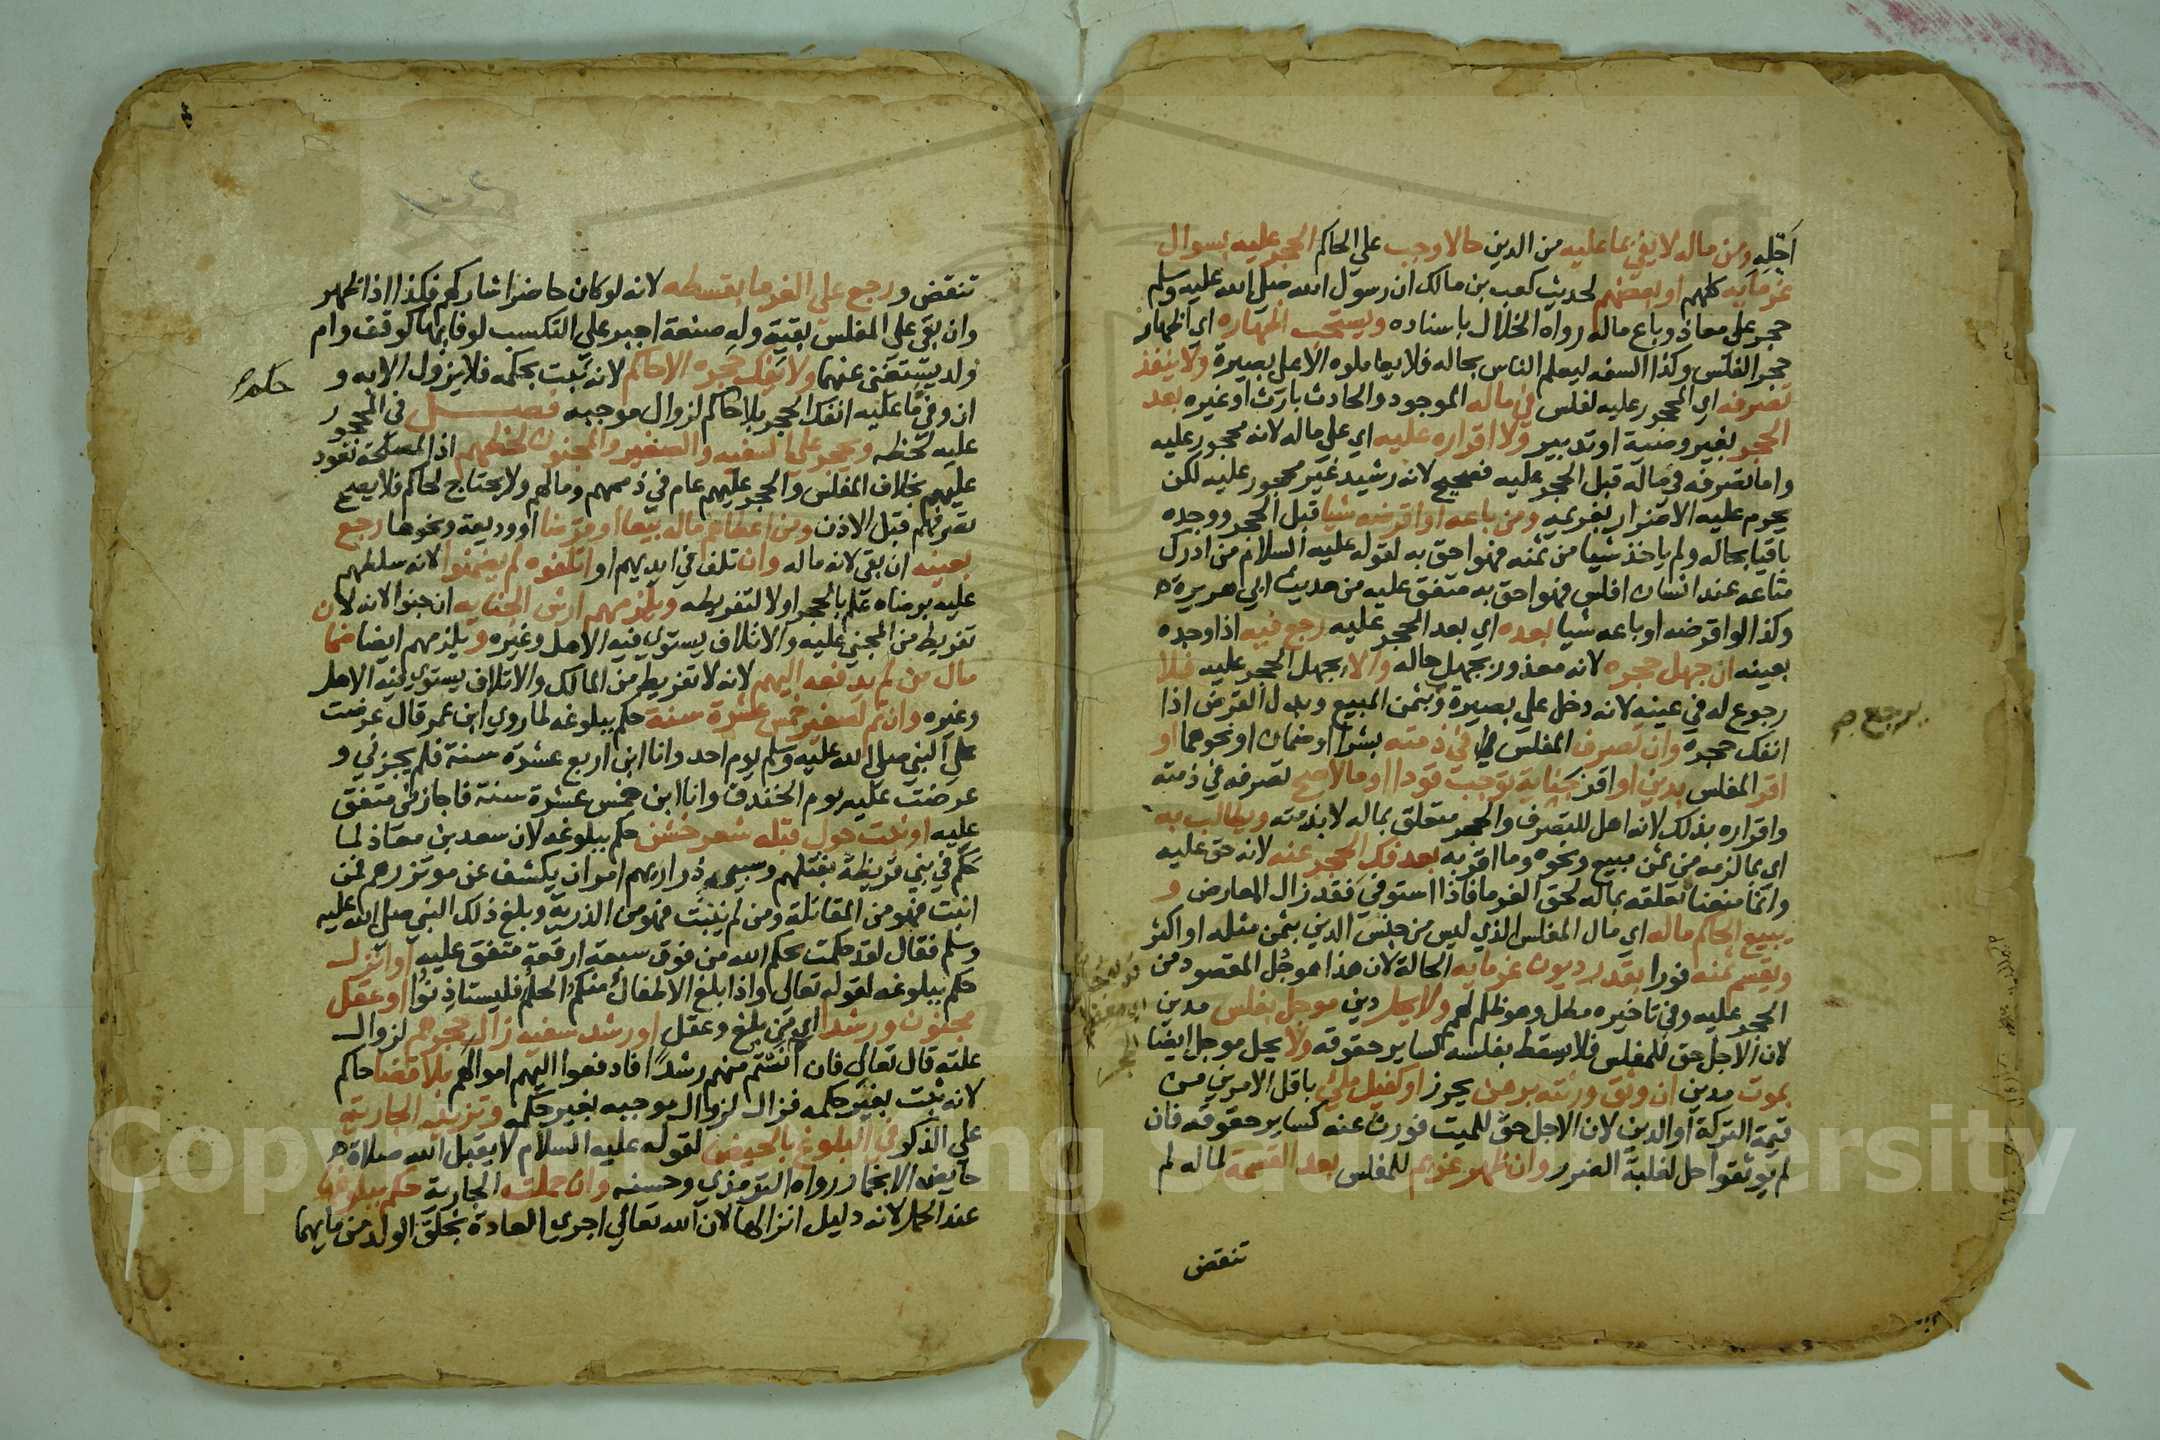 اجله ومن ماله لا يفي بما عليه من الدين حالا وجب علي الحاكم الحجر عليه بسوال
غرمايه كلهم او بعضهم لحديث كعب بن مالك ان رسول الله صلي الله عليه وسلم
حجر علي معاذ وباع ماله رواه الخلال باسناده ويستحب اظهاره اي اظهار
حجر الفلس وكذا السفه ليعلم الناس بحاله فلا يعاملوه الا علي بصيرة ولا ينفذ
تصرفه اي المحجور عليه لفلس في ماله الموجود والحادث بارث او غيره بعد
الحجر بغير وصية او تدبير ولا اقراره عليه اي علي ماله لانه محجور عليه
واما تصرفه في ماله قبل الحجر عليه فصحيح لانه رشيد غير محجور عليه لكن
يحرم عليه الاضرار بغريمه ومن باعه او اقرضه شيا قبل الحجر ووجده
باقيا بحاله ولم ياخذ شيا من ثمنه فهو احق به لقوله عليه السلام من ادرك
متاعه عند انسان افلس فهو احق به متفق عليه من حديث ابي هريرة
وكذا لو اقرضه او باعه شيا بعده اي بعد الحجر عليه رجع فيه اذا وجده
بعينه ان جهل حجره لانه معذور بجهل حاله والا يجهل الحجر عليه فلا
رجوع له في عينه لانه دخل علي بصيرة وبثمن المبيع وبدل القرض اذا
انفك حجره وان تصرف المفلس في ذمته بشرا او ضمان او نحوهما او
اقر المفلس بدين او اقر بجناية توجب قودا او مالا صح تصرفه في ذمته
واقراره بذلك لانه اهل للتصرف والحجر متعلق بماله لا بذمته ويطالب به
اي بما لزمه من ثمن مبيع ونحوه وما اقر به بعد فك الحجر عنه لانه حق عليه
وانما منعنا تعلقه بماله لحق الغرما فاذا استوفي فقد زال المعارض و
يبيع الحاكم ماله اي مال المفلس الذي ليس من جنس الدين بثمن مثله او اكثر
ويقسم ثمنه فورا بقدر ديون غرمايه الحالة لان هذا هو جل المقصود من
الحجر عليه وفي تاخيره مطل وهو ظلم لهم ولا يحل دين موجل بفلس مدين
لان الاجل حق للمفلس فلا يسقط بفلسه كساير حقوقه ولا يحل موجل ايضا
بموت مدين ان وثق ورثته برهن يحرز او كفيل ملي باقل الامرين من
قيمة التركة او الدين لان الاجل حق للميت فورث عنه كساير حقوقه فان
لم يوثقوا حل لغلبة الضرر وان ظهر غريم للمفلس بعد القسمة لماله لم
تنقض
يرجع صح
تنقض ورجع علي الغرما بقسطه لانه لو كان حاضرا شاركهم فكذا اذا ظهر
وان بقي علي المفلس بقية وله صنعة اجبر علي التكسب لوفايها كوقف وام
ولد يستغني عنهما ولا يفك حجره الا حاكم لانه ثبت بحكمه فلا يزول الا به و
ان وفي ما عليه انفك الحجر بلا حاكم لزوال موجبه فصل في المحجور
عليه لحظه ويحجر علي السفيه والصغير والمجنون لحظهم اذ المصلحة تعود
عليهم بخلاف المفلس والحجر عليهم عام في ذممهم ومالهم ولا يحتاج لحاكم فلا يصح
تصرفهم قبل الاذن ومن اعطاهم ماله بيعا او قرضا او وديعة ونحوها رجع
بعينه ان بقي لانه ماله وان تلف في ايديهم او اتلفوه لم يضمنوا لانه سلطهم
عليه برضاه علم بالحجر او لا لتفريطه ويلزمهم ارش الجناية ان جنوا لانه لان
تفريط من المجني عليه والاتلاف يستوي فيه الاهل وغيره ويلزمهم ايضا ضما
مال من لم يدفعه اليهم لانه لا تفريط من المالك والاتلاف يستوي فيه الاهل
وغيره وان تم لصغير خمس عشرة سنة حكم ببلوغه لما روي ابن عمر قال عرضت
علي النبي صلي الله عليه وسلم يوم احد وانا ابن اربع عشرة سنة فلم يجزني و
عرضت عليه يوم الخندق وانا ابن خمس عشرة سنة فاجازني متفق
عليه او نبت حول قبله شعر خشن حكم ببلوغه لان سعد بن معاذ لما
حكم في بني قريظة بقتلهم وسبي ذراريهم امر ان يكشف عن موتزرهم فمن
انبت فهو من المقاتلة ومن لم ينبت فهو من الذرية وبلغ ذلك النبي صلي الله عليه
وسلم فقال لقد حكمت بحكم الله من فوق سبعة ارقعة متفق عليه او انزل
حكم ببلوغه لقوله تعالي واذا بلغ الاطفال منكم الحلم فليستاذنوا او عقل
مجنون ورشدا اي من بلغ وعقل او رشد سفيه زال حجرهم لزوال
علته قال تعالي فان انستم منهم رشدا فادفعوا اليهم اموالهم بلا قضا حاكم
لانه ثبت بغير حكمه فزال لزوال موجبه بغير حكمه وتزيد الجارية
علي الذكر في البلوغ بالحيض لقوله عليه السلام لا يقبل الله صلاة
حايض الا بخمار رواه الترمذي وحسنه وان حملت الجارية حكم ببلوغها
عند الحمل لانه دليل انزالها لان الله تعالي اجري العادة بخلق الولد من مايهما
حكم
Copyright © King Saud University